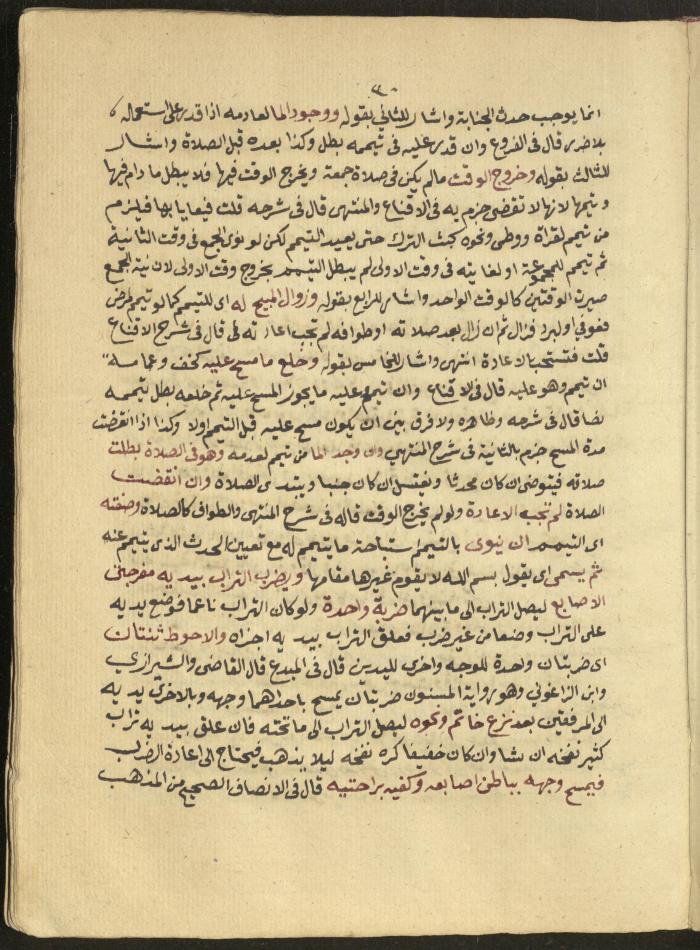 ٣٠
انما يوجب حدث الجنابة واشار للثاني بقوله ووجود الما لعادمه اذا قدر على استعماله
بلا ضرر قال في الفروع وان قدر عليه في تيممه بطل وكذا بعده قبل الصلاة واشار
للثالث بقوله وخروج الوقت مالم يكن في صلاة جمعة ويخرج الوقت فيها فلا يبطل ما دام فيها
ويتمها لانها لا تقضى جزم به في الاقناع والمنتهى قال في شرحه قلت فيعايا بها فيلزم
من تيمم لقراة ووطى ونحوه كبث الترك حتى يعيد التيمم لكن لو نوى الجمع في وقت الثانية
ثم تيمم للمجموعة او لفايتة في وقت الاولى لم يبطل التيمم بخروج وقت الاولى لان نية الجمع
صيرت الوقتين كالوقت الواحد واشار للرابع بقوله وزوال المبيح له اى للتيمم كما لو تيمم لمرض
فعوفي او لبرد فزال ثم ان زال بعد صلاته او طوافه لم تجب اعادته قال في شرح الاقناع
قلت فتستحب الاعادة انتهى واشار للخامس بقوله وخلع ما مسح عليه كخف وعمامة
ان تيمم وهو عليه قال في الاقناع وان تيمم وعليه ما يجوز المسح عليه ثم خلعه بطل تيممه
نصا قال في شرحه وظاهره ولا فرق بين ان يكون مسح عليه قبل التيمم اولا وكذا اذا انقضت
مدة المسح جزم بالثانية في شرح المنتهي وان وجد الما من تيمم لعدمه وهو في الصلاة بطلت
صلاته فيتوضى ان كان محدثا ويغتسل ان كان جنبا ويبتدى الصلاة وان انقضت
الصلاة لم تجب الاعادة ولو لم يخرج الوقت قاله في شرح المنتهى والطواف كالصلاة وصفته
اى التيمم ان ينوى بالتيمم استباحة ما يتيمم له مع تعيين الحدث الذى يتيمم عنه
ثم يسمى اى يقول بسم الله لا يقوم غيرها مقامها ويضرب التراب بيديه مفرجتي
الاصابع ليصل التراب الى ما بينهما ضربة واحدة ولو كان التراب ناعما فوضع يديه
على التراب وضعا من غير ضرب فعلق التراب بيديه اجزاه والاحوط ثنتان
اى ضربتان واحدة للوجه واخرى لليدين قال في المبدع قال القاضى والشيرازي
وابن الزاغوني وهو رواية المسنون ضربتان يمسح باحداهما وجهه وبالاخرى يديه
الى المرفقين بعد نزع خاتم ونحوه ليصل التراب الى ما تحته فان علق بيديه تراب
كثير نفخه ان شا وان كان خفيفا كره نفخه ليلا يذهب فيحتاج الى اعادة الضرب
فيمسح وجهه بباطن اصابعه وكفيه براحتيه قال في الانصاف الصحيح من المذهب